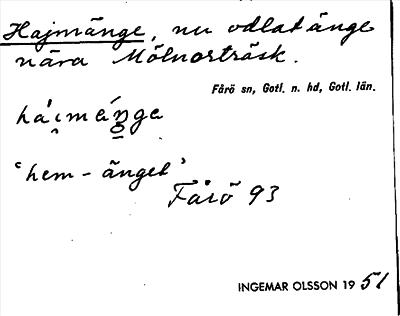 Hajmänge, nu odlat änge
nära Mölnorträsk.
Fårö sn, Gotl. n. hd, Gotl. län.
'hem-änget'
Fårö 93
INGEMAR OLSSON 19 51